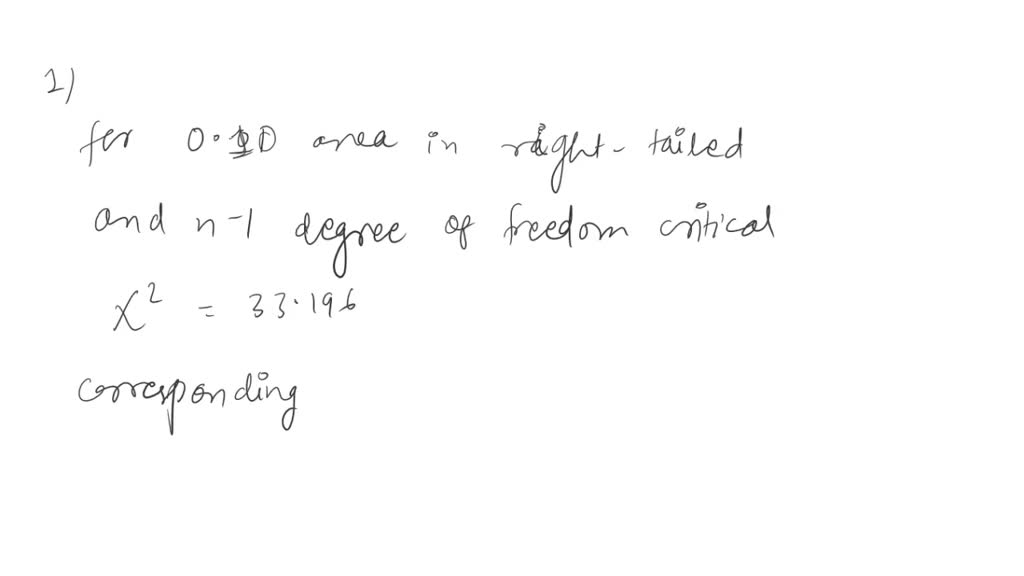 1)
for 0.10 area in right-tailed
and n-1 degree of freedom critical
χ² = 33.196
corresponding